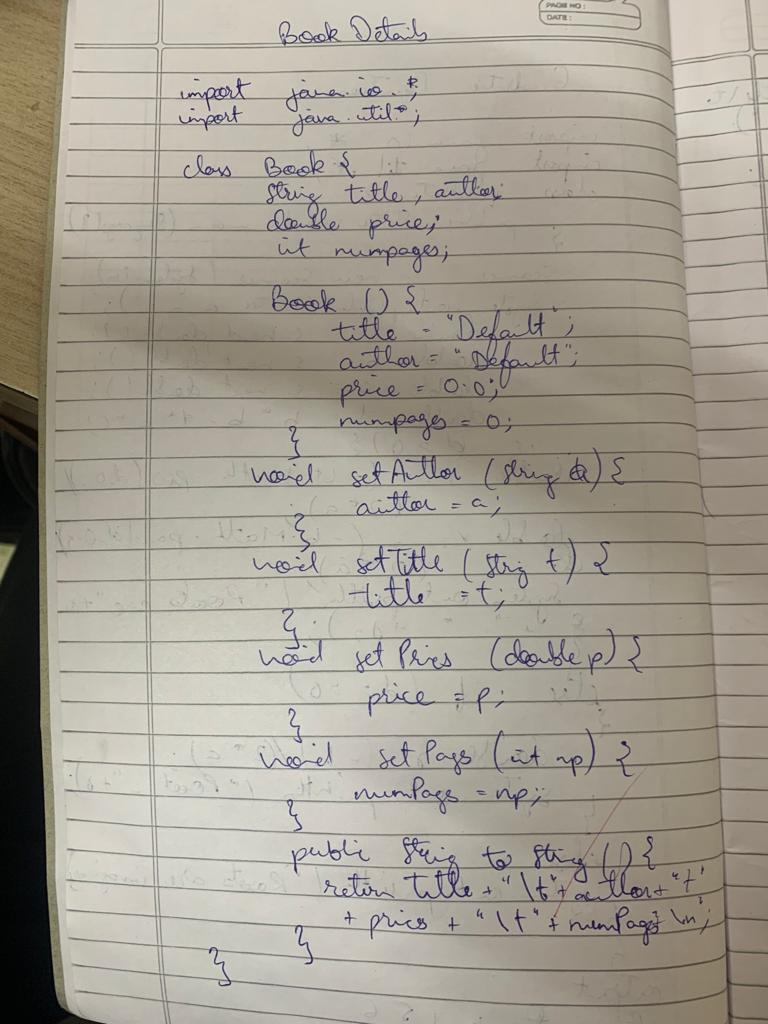 PAGE NO:
DATE:
Book Details
import java.io.*;
import java.util*;
class Book {
String title, author;
double price;
int numpages;
Book () {
title = "Default";
author = "Default";
price = 0.0;
numpages = 0;
}
void setAuthor (String a) {
author = a;
}
void setTitle (String t) {
title = t;
}
void set Prices (double p) {
price = p;
}
void set Pags (int np) {
numPags = np;
}
public String to String () {
return title + "\t" + author + "t"
+ prics + "\t" + numPags+ \n";
}
}